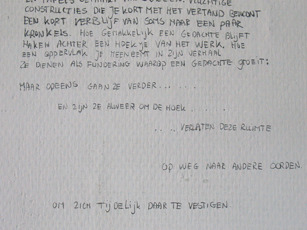 CONSTRUCTIES DIE JE KORT MET HET VERTAND BEWOONT
EEN KORT VERBLIJF VAN SOMS MAAR EEN PAAR
KRONKELS. HOE GEMAKKELIJK EEN GEDACHTE BLIJFT
HAKEN ACHTER EEN HOEKJE VAN HET WERK, HOE
EEN OPPERVLAK JE MEENEEMT IN ZIJN VERHAAL
ZE DIENEN ALS FUNDERING WAAROP EEN GEDACHTE GROEIT:
MAAR OPEENS GAAN ZE VERDER........
EN ZIJN ZE ALWEER OM DE HOEK........
.... VERLATEN DEZE RUIMTE
OP WEG NAAR ANDERE OORDEN.
OM ZICH TIJDELIJK DAAR TE VESTIGEN